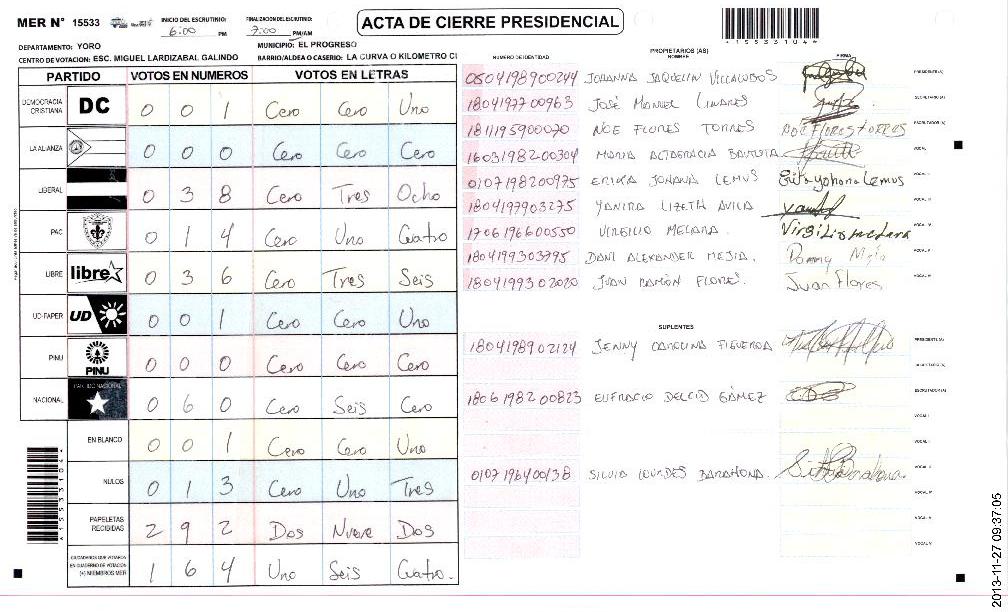 MER Nº 15533 INICIO DEL ESCRUTINIO: 6:00 PM FINALIZACIÓN DEL ESCRUTINIO: 7:00 PM/AM
ACTA DE CIERRE PRESIDENCIAL
*1553310 4*
DEPARTAMENTO: YORO MUNICIPIO: EL PROGRESO
CENTRO DE VOTACION: ESC. MIGUEL LARDIZABAL GALINDO BARRIO/ALDEA O CASERIO: LA CURVA O KILOMETRO CI
PARTIDO VOTOS EN NUMEROS VOTOS EN LETRAS
DEMOCRACIA CRISTIANA DC 0 0 1 Cero Cero Uno
LA ALIANZA 0 0 0 Cero Cero Cero
LIBERAL 0 3 8 Cero Tres Ocho
PAC 0 1 4 Cero Uno Cuatro
LIBRE libre 0 3 6 Cero Tres Seis
UD-FAPER UD 0 0 1 Cero Cero Uno
PINU PINU 0 0 0 Cero Cero Cero
NACIONAL PARTIDO NACIONAL 0 6 0 Cero Seis Cero
EN BLANCO 0 0 1 Cero Cero Uno
NULOS 0 1 3 Cero Uno Tres
PAPELETAS RECIBIDAS 2 9 2 Dos Nueve Dos
CIUDADANOS QUE VOTARON EN CUADERNO DE VOTACION (+) MIEMBROS MER 1 6 4 Uno Seis Cuatro.
PROPIETARIOS (AS)
NUMERO DE IDENTIDAD NOMBRE FIRMA
0504198900244 JOHANNA JAQUELIN VILLALOBOS PRESIDENTE (A)
1804197700963 JOSÉ MANUEL LINARES SECRETARIO (A)
1811195900070 NOE FLORES TORRES NOE FLORES TORRES ESCRUTADOR (A)
1603198200304 MARIA ALTAGRACIA BAUTISTA VOCAL I
0107198200975 ERIKA JOHANA LEMUS Erika yohana Lemus VOCAL II
1804197903275 YANIRA LIZETH AVILA VOCAL III
1706196600550 VIRGILIO MELARA Virgilio melara VOCAL IV
1804199303795 DANI ALEXANDER MEJIA. VOCAL V
1804199302020 JUAN RAMÓN FLORES. Juan Flores VOCAL VI
SUPLENTES
1804198902124 JENNY CAROLINA FIGUEROA PRESIDENTE (A)
SECRETARIO (A)
1806198200823 EUFRACIO DELCID GÁMEZ ESCRUTADOR (A)
VOCAL I
VOCAL II
0107196400138 SILVIA LOURDES BARAHONA. VOCAL III
VOCAL IV
VOCAL V
VOCAL VI
2013-11-27 09:37:05